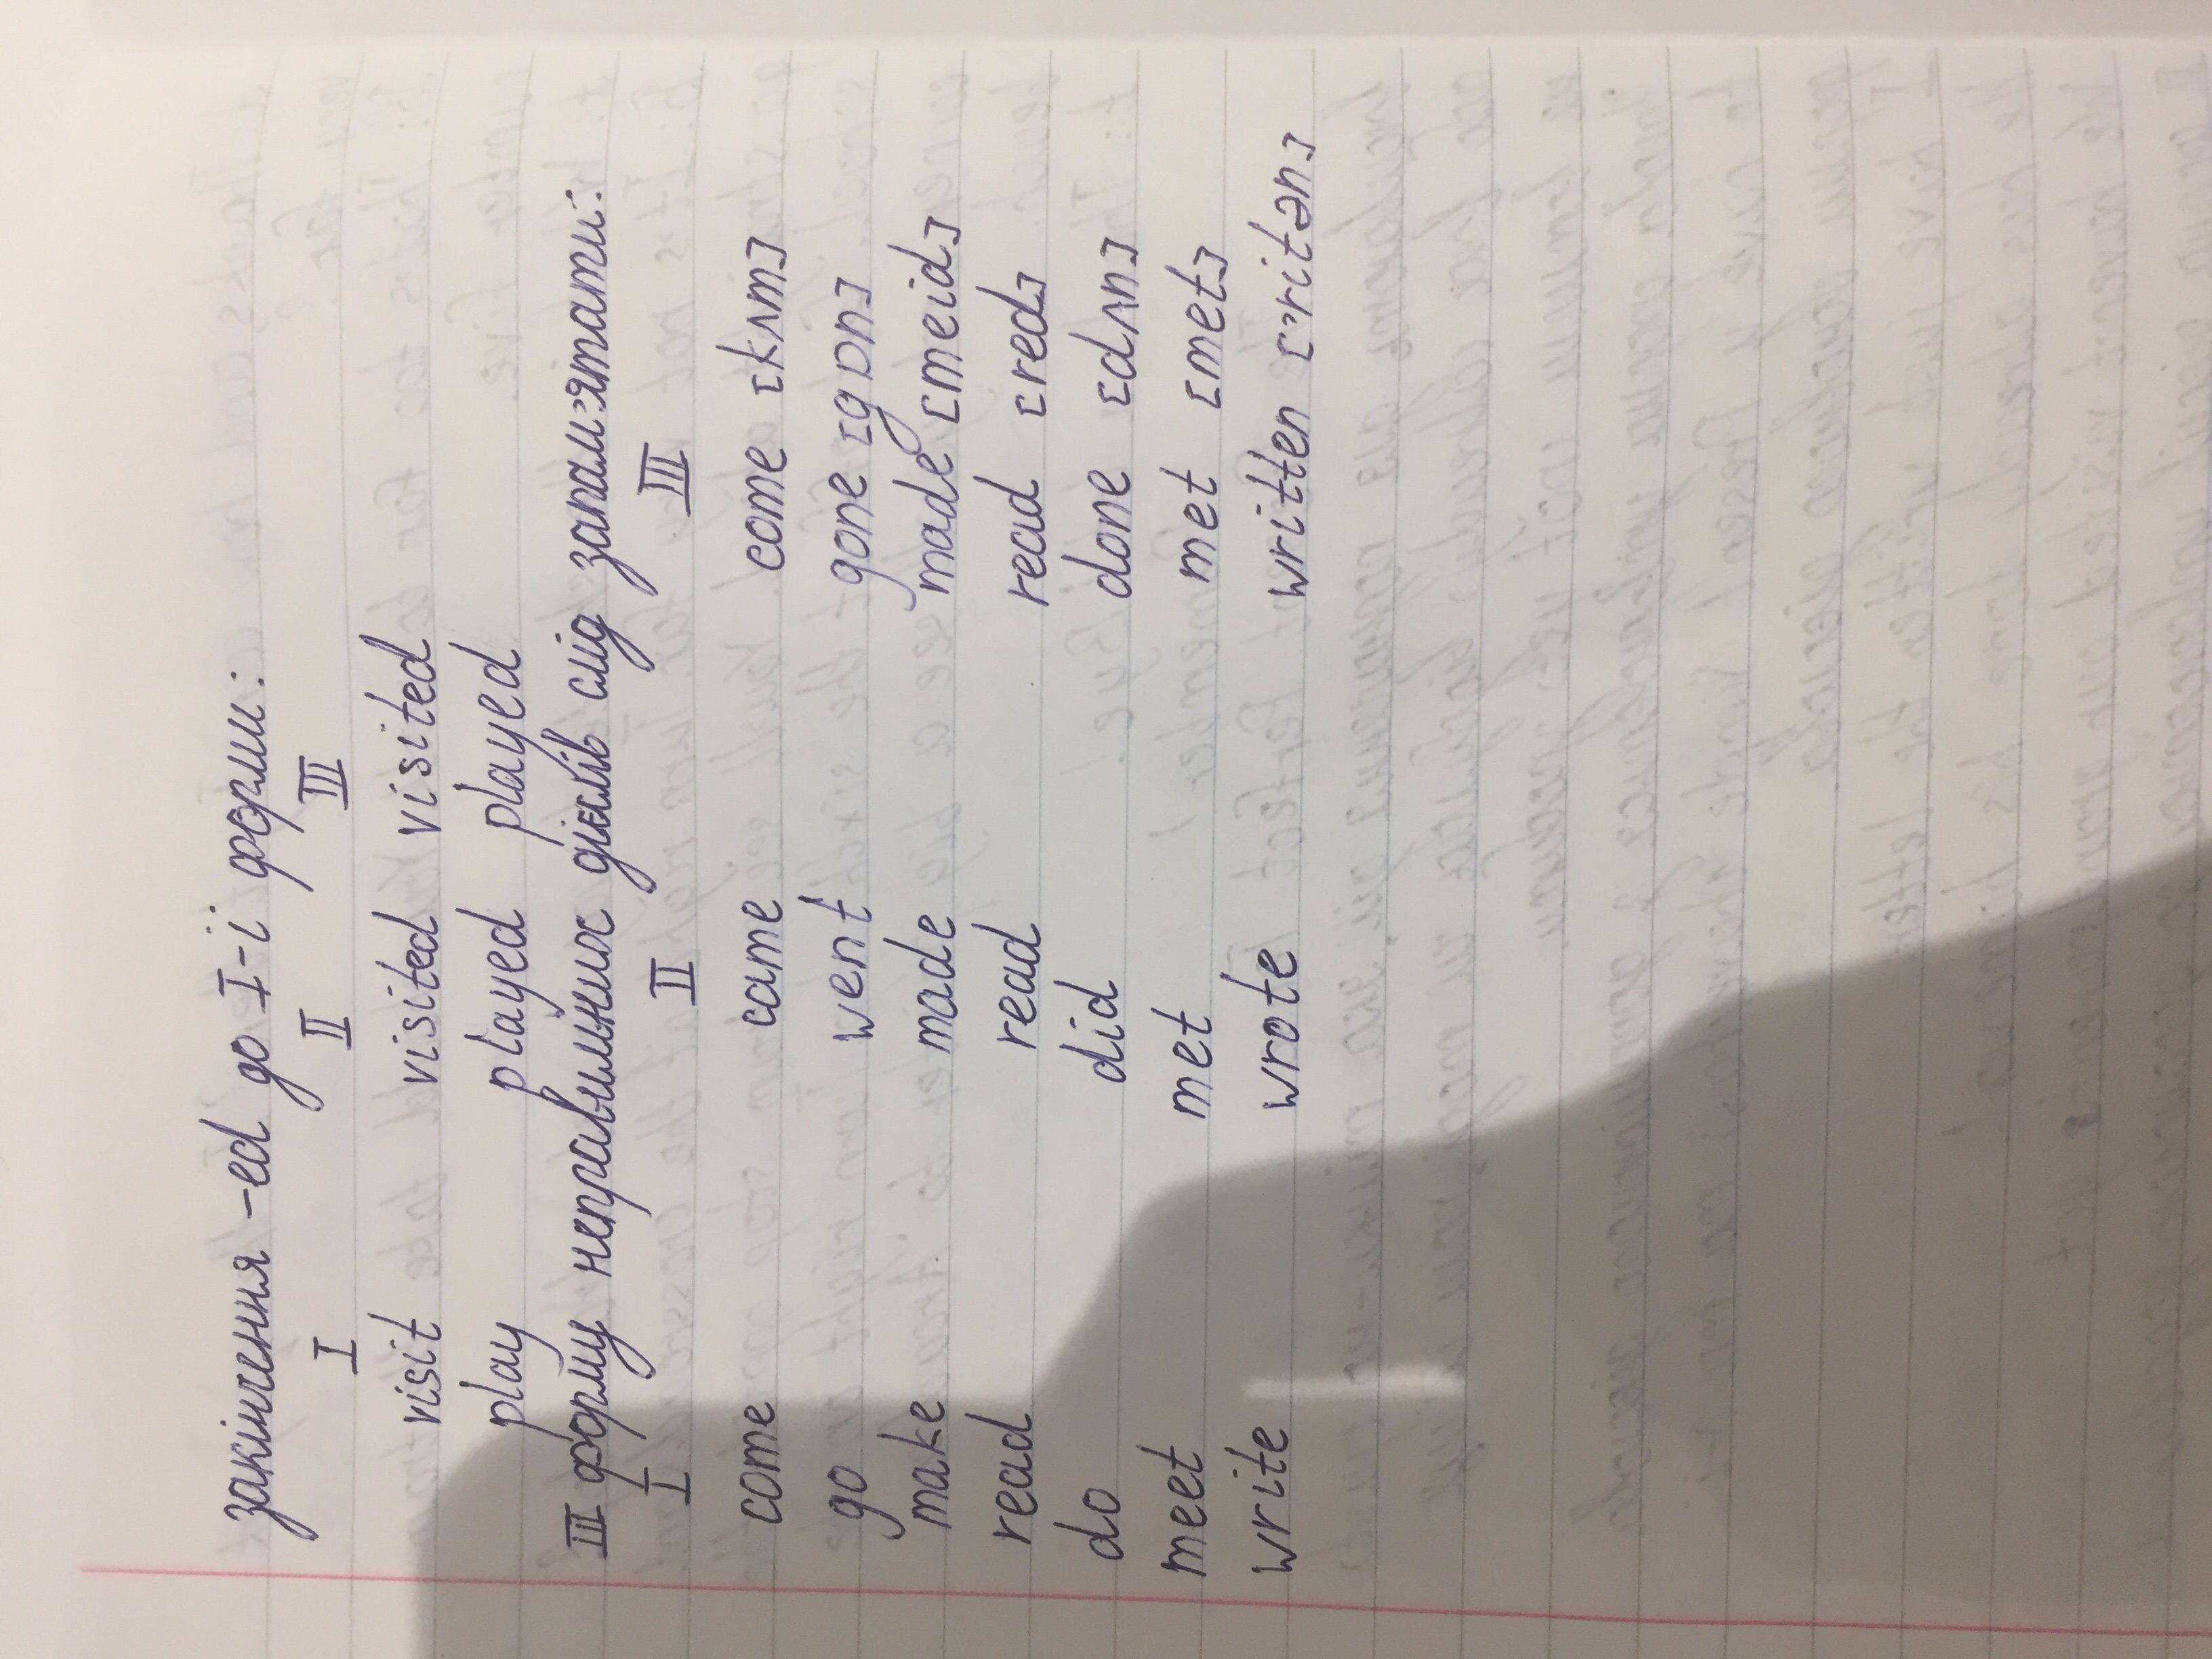 закінчення -ed до I-ї форми:
I II III
visit visited visited
play played played
III форму неправильних дієслів слід запам'ятати:
I II III
come came come [kʌm]
go went gone [gɒn]
make made made [meid]
read read read [red]
do did done [dʌn]
meet met met [met]
write wrote written ['ritən]